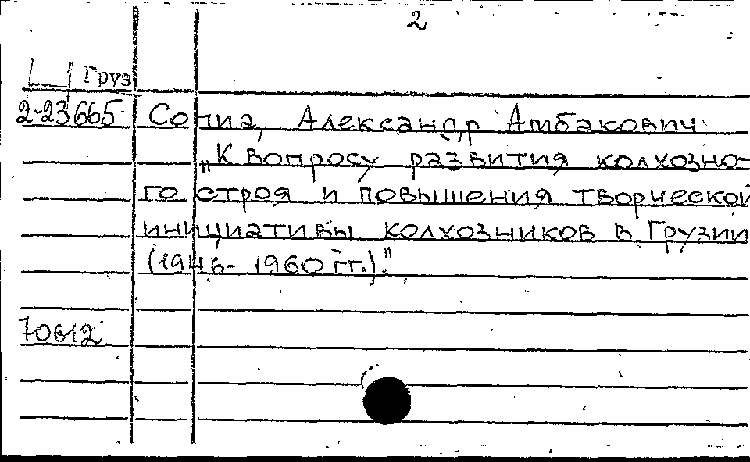 2
Груз
2-23665 Сопиа, Александр Амбакович.
„К вопросу развития колхозно-
го строя и повышения творческой
инициативы колхозников в Грузии
(1946-1960 гг.)."
70612